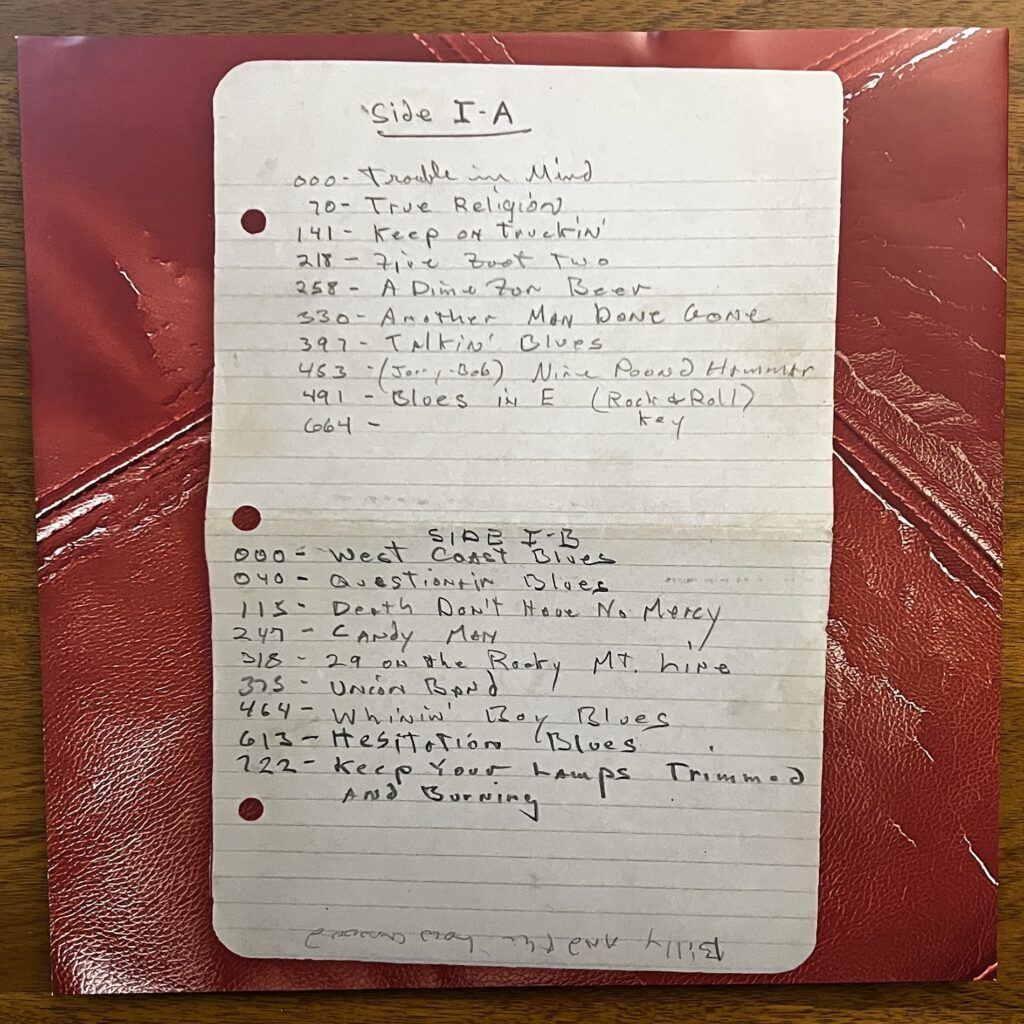 Side I-A
000- Trouble in Mind
70- True Religion
141- Keep on Truckin'
218- Five Foot Two
258- A Dime For Beer
330- Another Man Done Gone
397- Talkin' Blues
453 -(Jorm,-Bob) Nine Pound Hammer
491- Blues in E (Rock & Roll)
Key
664-
SIDE I-B
000- West Coast Blues
040- Questionin Blues
115- Death Don't Have No Mercy
247- Candy Man
318- 29 on the Rocky Mt. Line
375- Uncon Band
464- Whinin' Boy Blues
613- Hesitation Blues
722- Keep Your Lamps Trimmed
And Burning
Billy And the